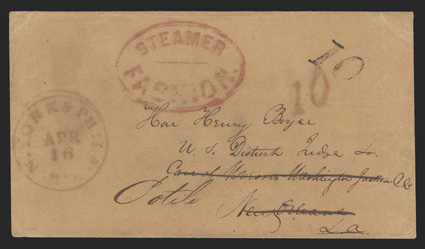 STEAMER
FASHION.
10
10
N. YORK & PH. R.R.
APR
16
Hon Henry Boyce
U. S. District Judge
Washington Jackson & Co
Cotile New Orleans
La.